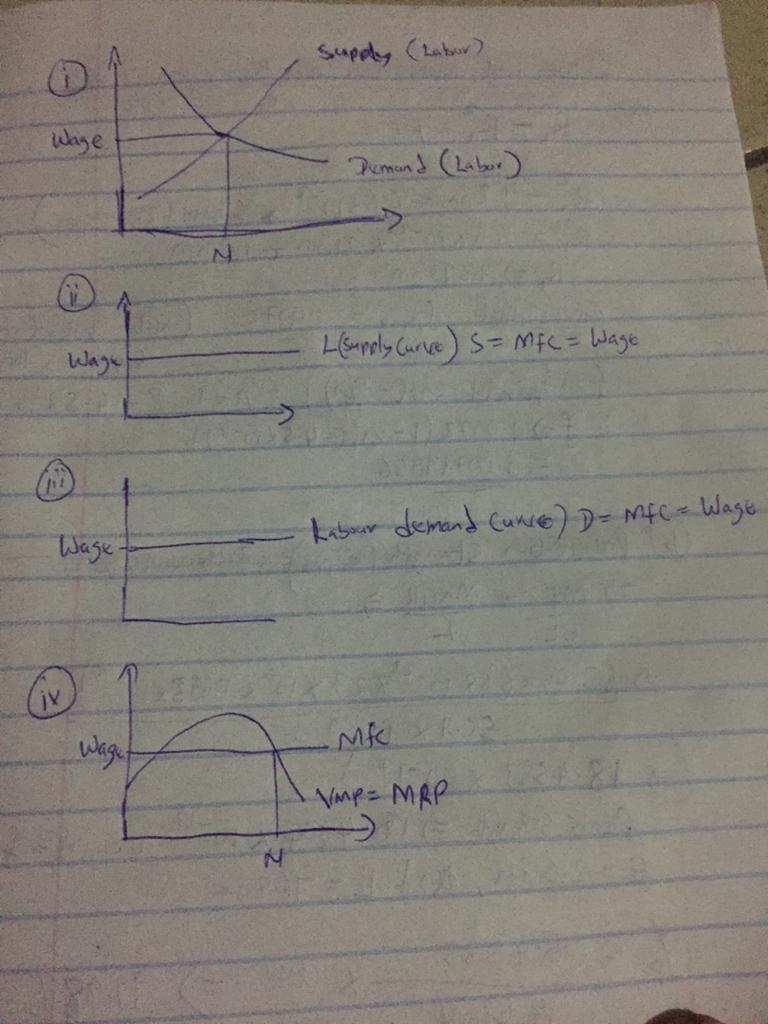 i
Supply (Labor)
Wage
Demand (Labor)
N
ii
Wage
L(supply curve) S = Mfc = Wage
iii
Wage
Labour demand curve) D = Mfc = Wage
iv
Wage
Mfc
VMP = MRP
N